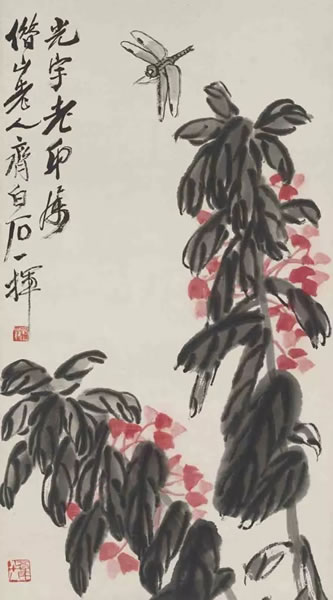 光宇老弟属
借山老人齊白石一揮